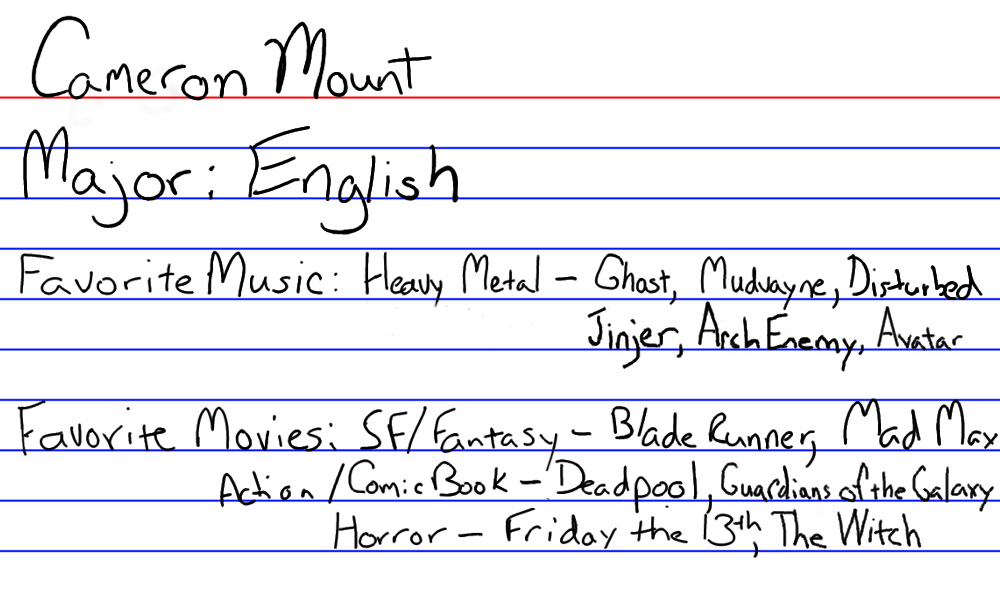 Cameron Mount
Major: English
Favorite Music: Heavy Metal - Ghost, Mudvayne, Disturbed
Jinjer, Arch Enemy, Avatar
Favorite Movies: SF/Fantasy - Blade Runner, Mad Max
Action/Comic Book - Deadpool, Guardians of the Galaxy
Horror - Friday the 13th, The Witch